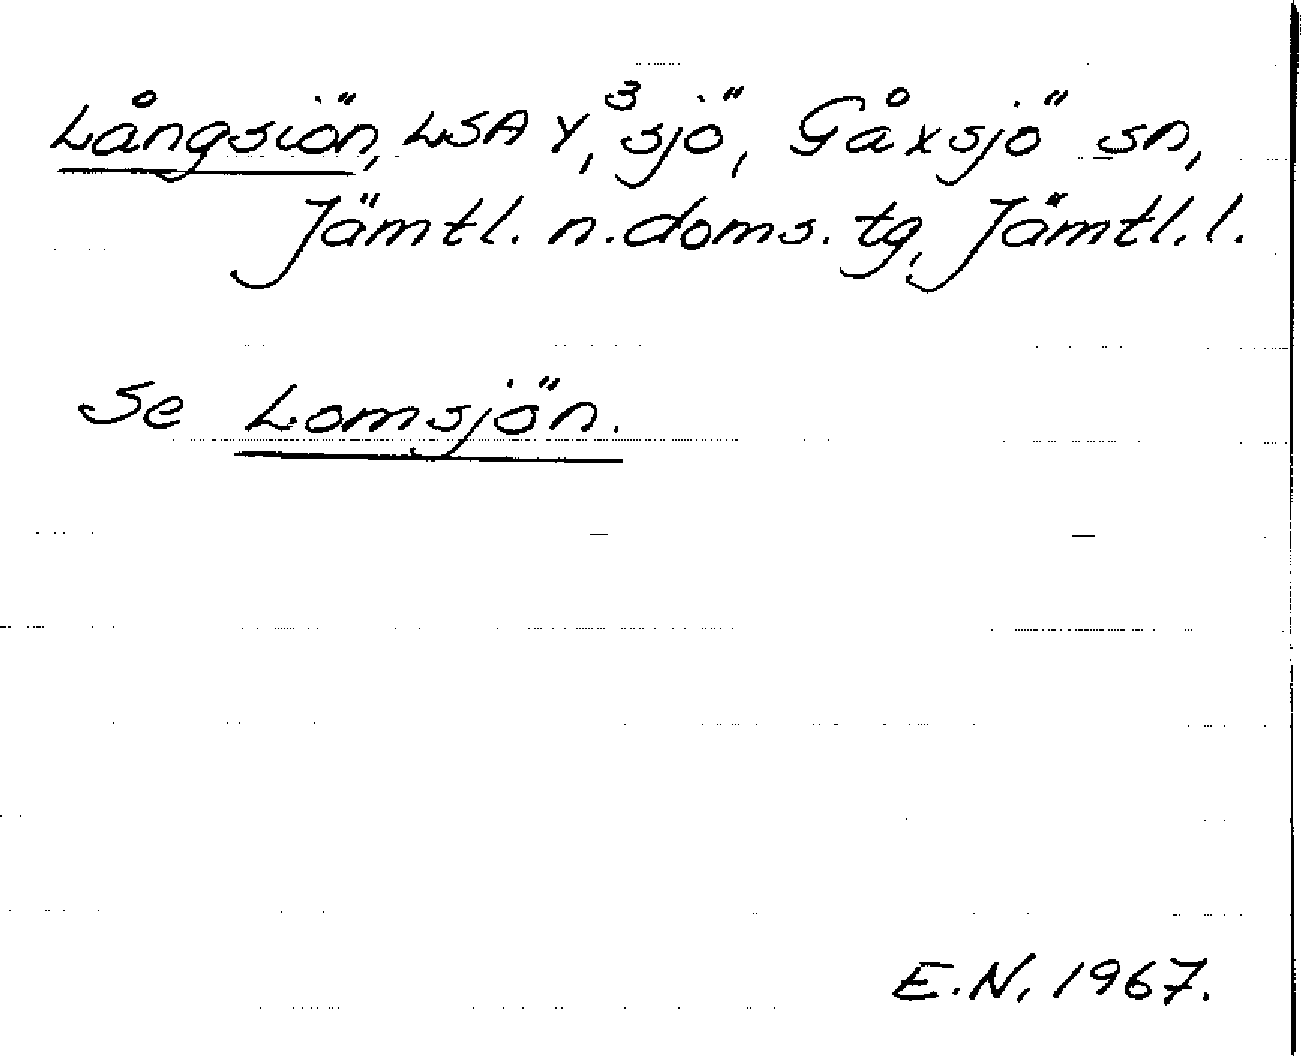 Långsiön, LSA Y,³ sjö, Gåxsjö sn,
Jämtl. n. doms. tg, Jämtl. l.
Se Lomsjön.
E.N. 1967.